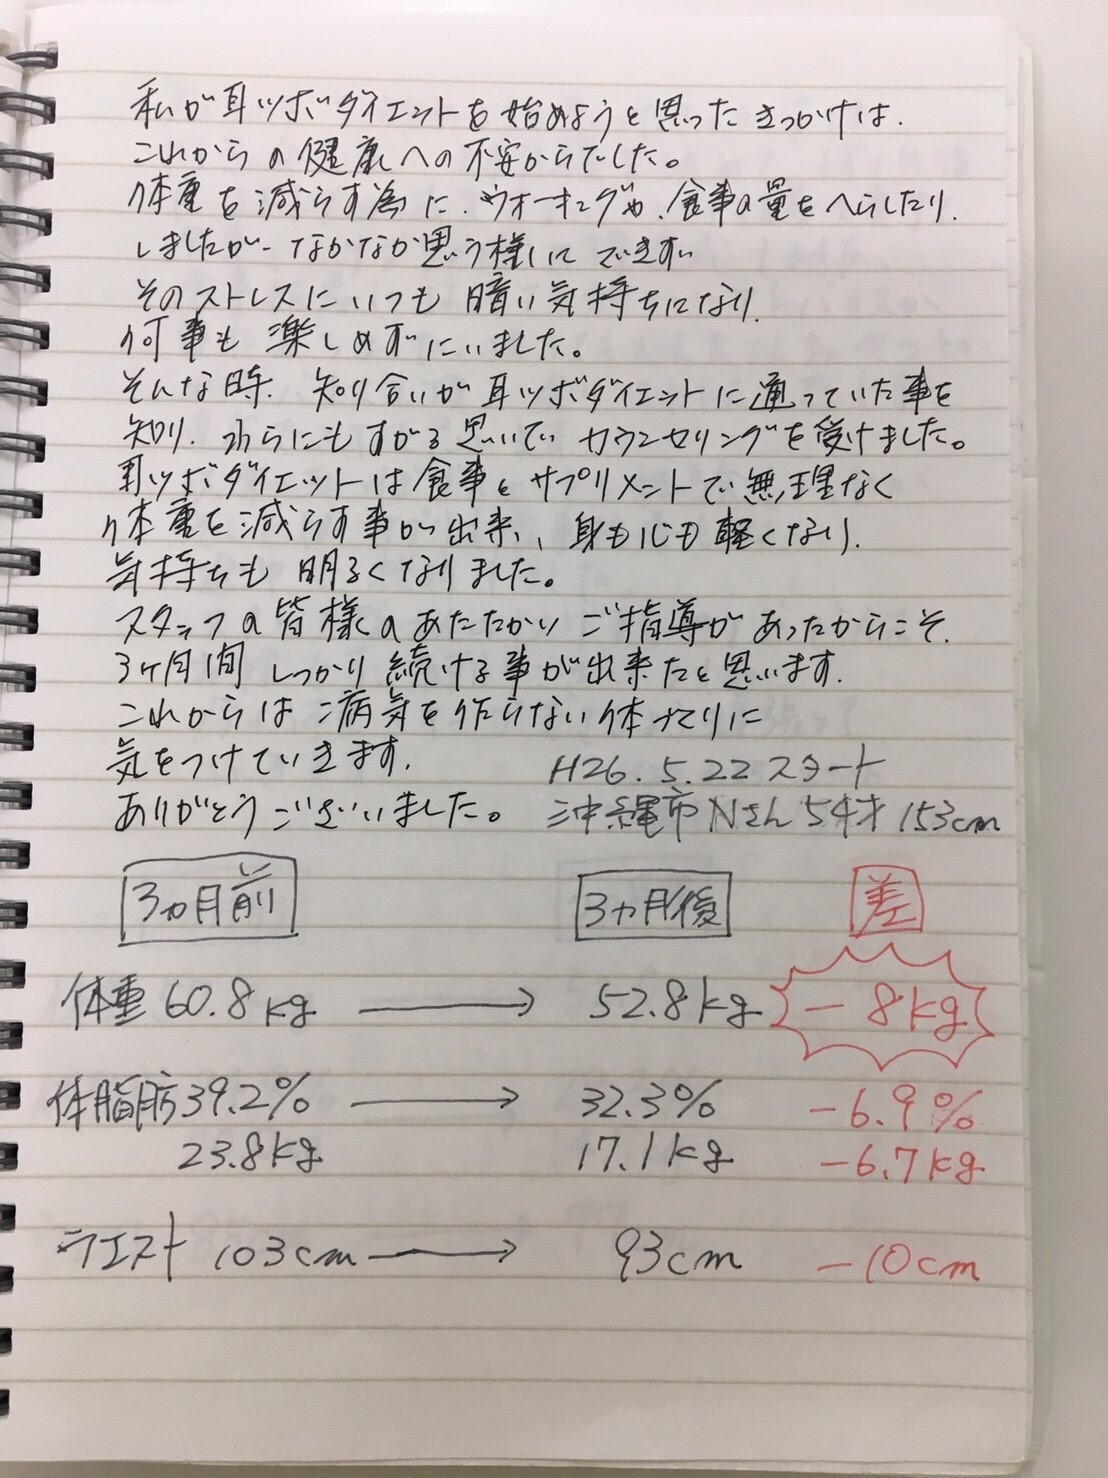 私が耳ツボダイエットを始めようと思ったきっかけは、
これからの健康への不安からでした。
体重を減らす為に、ウォーキングや、食事の量をへらしたり、
しましたが、なかなか思う様にできず、
そのストレスにいつも暗い気持ちになり、
何事も楽しめずにいました。
そんな時、知り合いが耳ツボダイエットに通っていた事を
知り、わらにもすがる思いでカウンセリングを受けました。
耳ツボダイエットは食事とサプリメントで無理なく
体重を減らす事が出来、身も心も軽くなり、
気持ちも明るくなりました。
スタッフの皆様のあたたかいご指導があったからこそ、
3ヶ月間しっかり続ける事が出来たと思います。
これからは病気を作らない体づくりに
気をつけていきます。
ありがとうございました。
H26.5.22スタート
沖縄市Nさん54才 153cm
3ヵ月前 3ヵ月後 差
体重60.8kg → 52.8kg -8kg
体脂肪39.2% → 32.3% -6.9%
23.8kg 17.1kg -6.7kg
ウエスト 103cm → 93cm -10cm